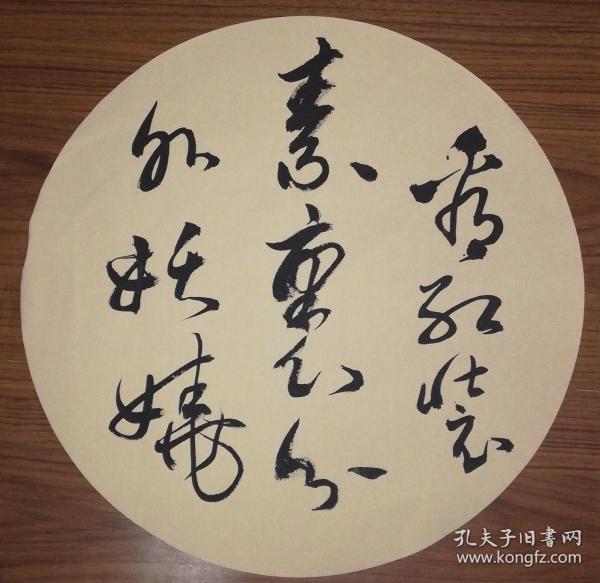 看红装
素裹分
外妖娆
孔夫子旧书网
www.kongfz.com